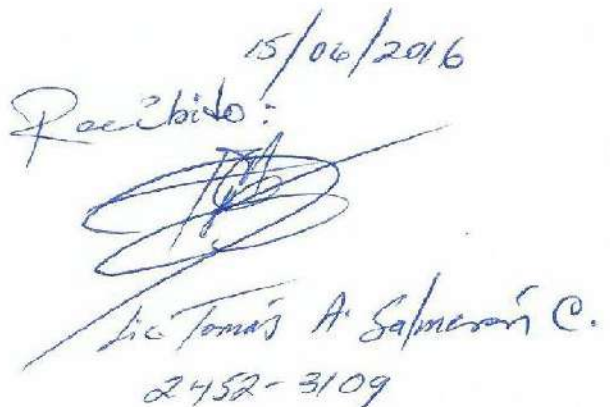 15/06/2016
Recibido:
Lic Tomás A. Salmerón C.
2452-3109